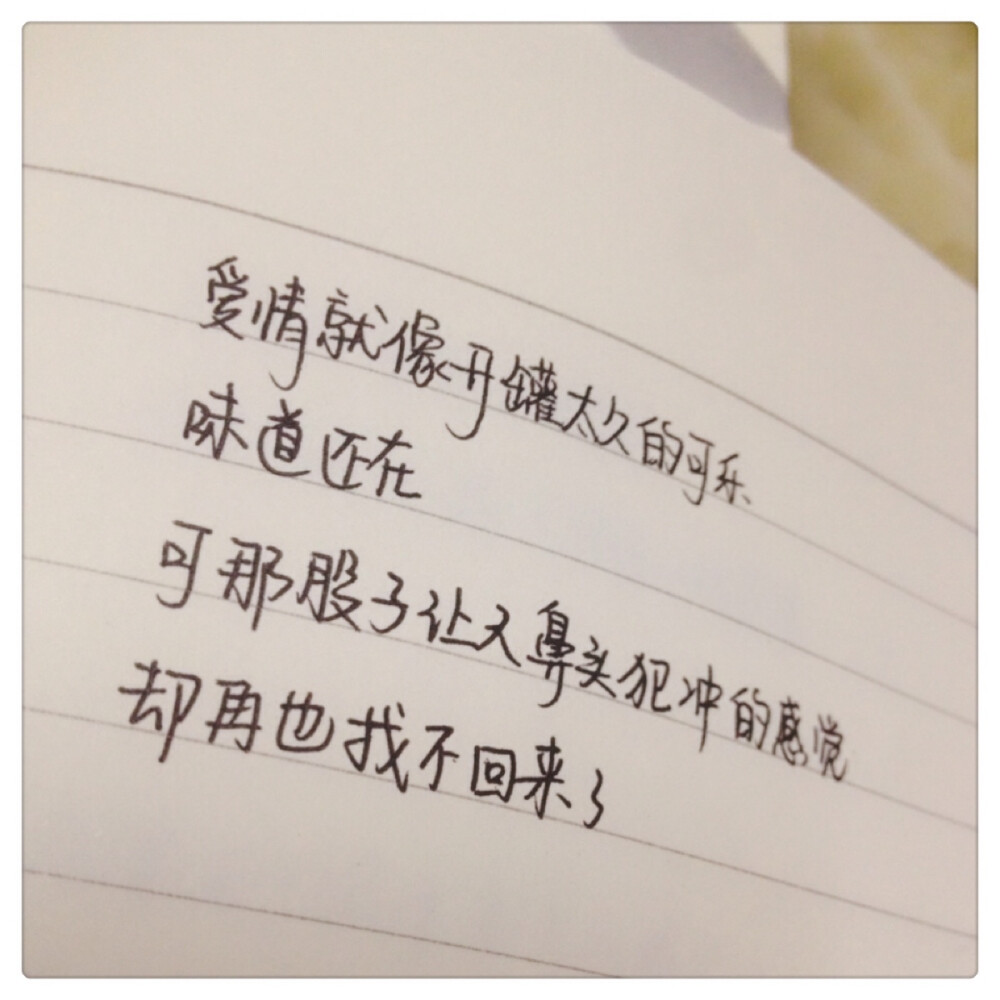 爱情就像开罐太久的可乐
味道还在
可那股子让人鼻头犯冲的感觉
却再也找不回来了